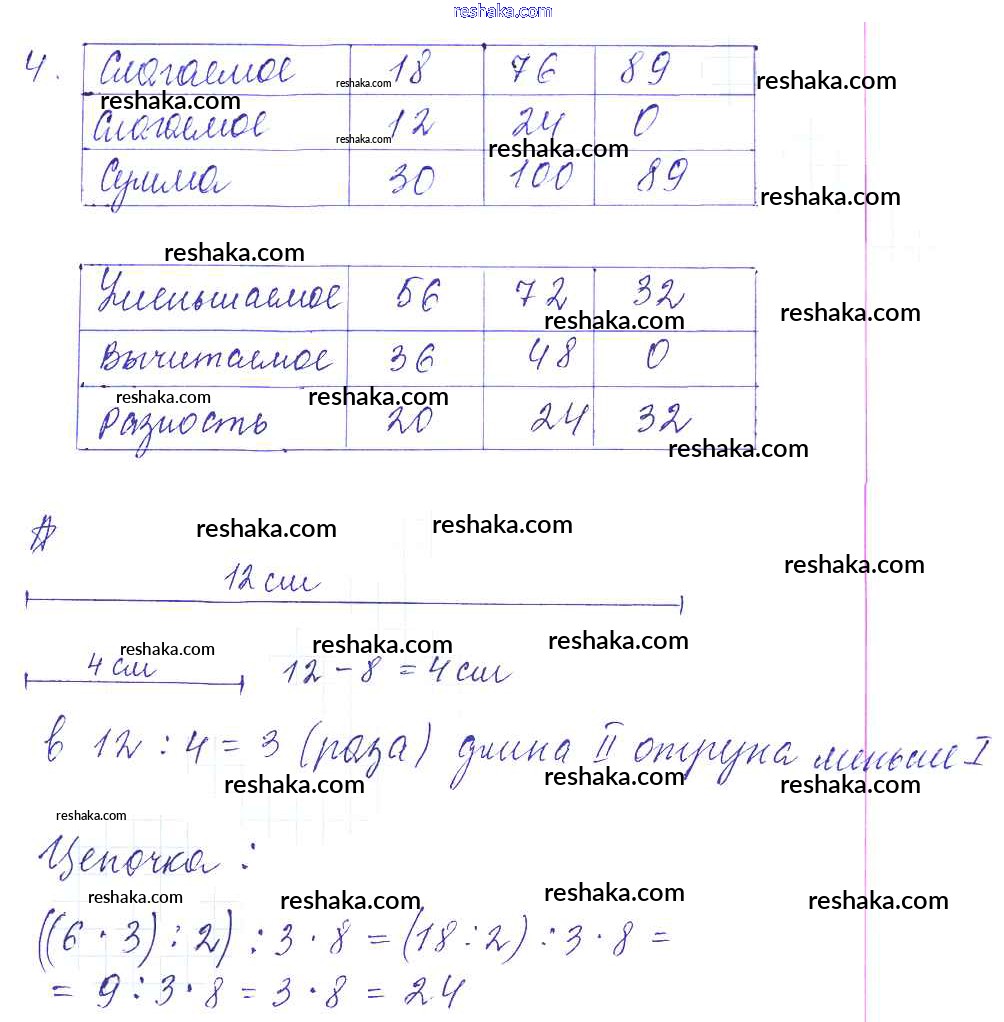 reshaka.com
4. Слагаемое 18 76 89
reshaka.com
reshaka.com
reshaka.com
Слагаемое 12 24 0
reshaka.com
reshaka.com
Сумма 30 100 89
reshaka.com
reshaka.com
Уменьшаемое 56 72 32
reshaka.com
reshaka.com
Вычитаемое 36 48 0
reshaka.com
reshaka.com
Разность 20 24 32
reshaka.com
reshaka.com
reshaka.com
reshaka.com
12 см
reshaka.com
reshaka.com
reshaka.com
4 см 12 - 8 = 4 см
в 12 : 4 = 3 (раза) длина II отрезка меньше I
reshaka.com
reshaka.com
reshaka.com
reshaka.com
Цепочка :
reshaka.com
reshaka.com
reshaka.com
reshaka.com
((6 · 3) : 2) : 3 · 8 = (18 : 2) : 3 · 8 =
= 9 : 3 · 8 = 3 · 8 = 24